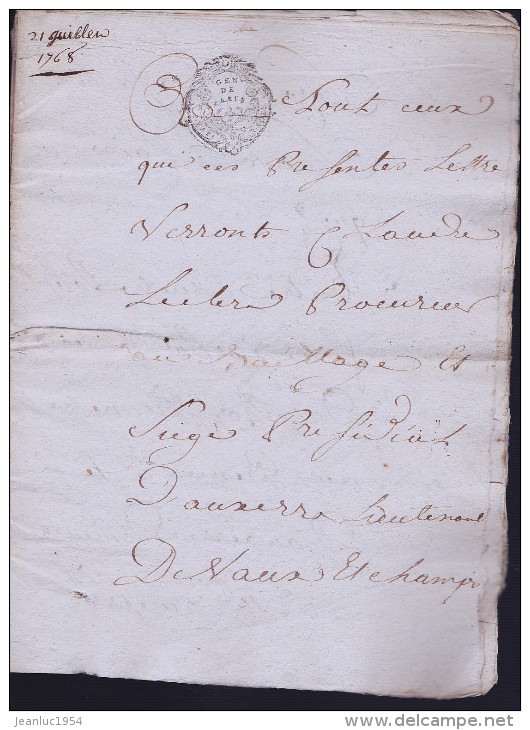 21 juillet
1768
GEN
DE
PARIS
A Tous ceux
qui ces Presentes Lettre
Verronts Claude
Leclerc Procureur
au Baillage Et
Siege Presidial
Dauxerre Lieutenant
De Vaux Et champs
jeanluc1954
www.delcampe.net